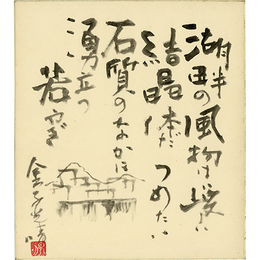 湖畔の風物は淡い
結晶体だ つめたい
石質のなかに
湧立つ
若さ
金子光晴